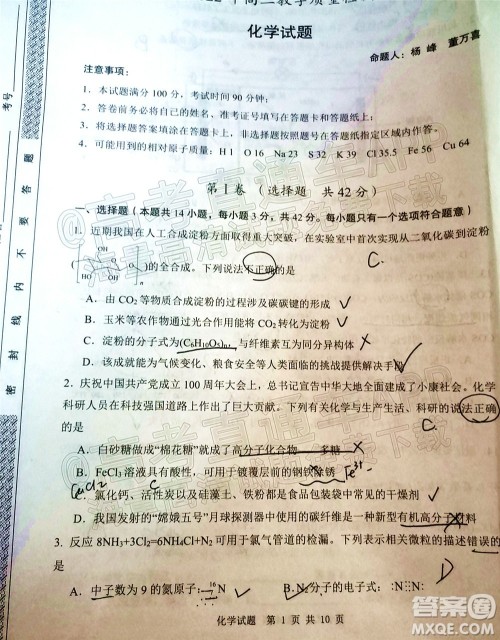 化学试题
命题人：杨 峰 董万喜
注意事项：
1．本试题满分 100 分，考试时间 90 分钟；
2．答卷前务必将自己的姓名、准考证号填写在答题卡和答题纸上；
3．将选择题答案填涂在答题卡上，非选择题按照题号在答题纸指定区域内作答。
4．可能用到的相对原子质量：H 1 O 16 Na 23 S 32 Cl 35.5 Fe 56 Cu 64
第Ⅰ卷（选择题 共 42 分）
一、选择题（本题共 14 小题，每小题 3 分，共 42 分。每小题只有一个选项符合题意）
1．近期我国在人工合成淀粉方面取得重大突破，在实验室中首次实现从二氧化碳到淀粉
的全合成。下列说法不正确的是
C.
A．由 CO2 等物质合成淀粉的过程涉及碳碳键的形成
B．玉米等农作物通过光合作用能将 CO2 转化为淀粉
C．淀粉的分子式为(C6H10O5)n，与纤维素互为同分异构体
D．该成就能为气候变化、粮食安全等人类面临的挑战提供解决手
2．庆祝中国共产党成立 100 周年大会上，总书记宣告中华大地全面建成了小康社会。化学
科研人员在科技强国道路上作出了巨大贡献。下列有关化学与生产生活、科研的说法正确
的是
C.
A．白砂糖做成“棉花糖”就成了高分子化合物 多糖
B．FeCl3 溶液具有酸性，可用于镀覆层前的钢铁除锈 Fe3+
C．氯化钙、活性炭以及硅藻土、铁粉都是食品包装袋中常见的干燥剂
D．我国发射的“嫦娥五号”月球探测器中使用的碳纤维是一种新型有机高分子材料
3．反应 8NH3+3Cl2=6NH4Cl+N2 可用于氯气管道的检漏。下列表示相关微粒的描述错误的
是
D
A．中子数为 9 的氮原子：16N
B．N2 分子的电子式：:N⋮⋮N:
化学试题 第 1 页 共 10 页
考号
密 封 线 内 不 要 答 题
答案圈
MXQE.COM